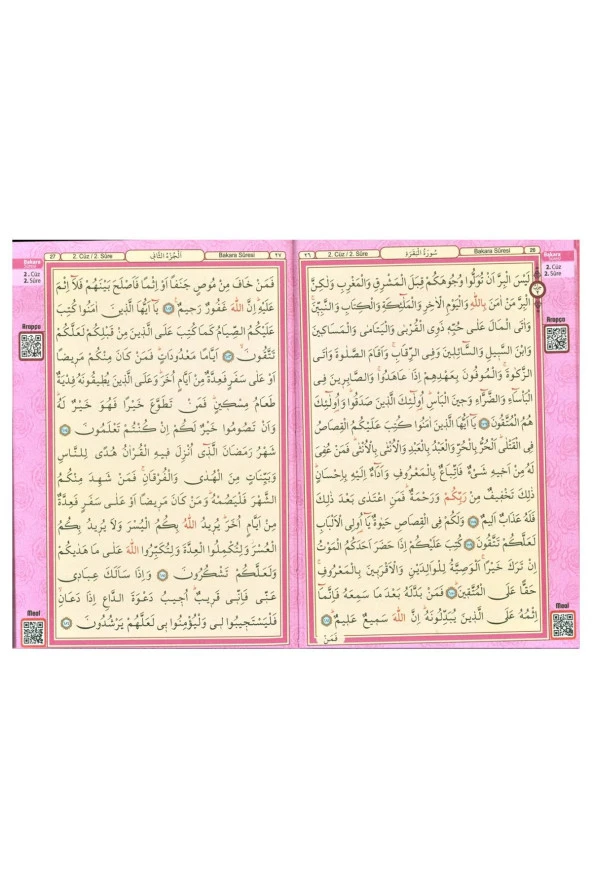 26
Bakara Sûresi
سُورَةُ الْبَقَرَةِ
2. Cüz / 2. Sûre
٢٦
لَيْسَ الْبِرَّ اَنْ تُوَلُّوا وُجُوهَكُمْ قِبَلَ الْمَشْرِقِ وَالْمَغْرِبِ وَلٰكِنَّ
الْبِرَّ مَنْ اٰمَنَ بِاللّٰهِ وَالْيَوْمِ الْاٰخِرِ وَالْمَلٰٓئِكَةِ وَالْكِتَابِ وَالنَّبِيّ۪نَۚ
وَاٰتَى الْمَالَ عَلٰى حُبِّه۪ ذَوِي الْقُرْبٰى وَالْيَتَامٰى وَالْمَسَاك۪ينَ
وَابْنَ السَّب۪يلِ وَالسَّٓائِل۪ينَ وَفِي الرِّقَابِۚ وَاَقَامَ الصَّلٰوةَ وَاٰتَى
الزَّكٰوةَۚ وَالْمُوفُونَ بِعَهْدِهِمْ اِذَا عَاهَدُواۚ وَالصَّابِر۪ينَ فِي
الْبَأْسَٓاءِ وَالضَّرَّٓاءِ وَح۪ينَ الْبَأْسِۜ اُو۬لٰٓئِكَ الَّذ۪ينَ صَدَقُواۜ وَاُو۬لٰٓئِكَ
هُمُ الْمُتَّقُونَ ﴿١٧٧﴾ يَٓا اَيُّهَا الَّذ۪ينَ اٰمَنُوا كُتِبَ عَلَيْكُمُ الْقِصَاصُ
فِي الْقَتْلٰىۜ اَلْحُرُّ بِالْحُرِّ وَالْعَبْدُ بِالْعَبْدِ وَالْاُنْثٰى بِالْاُنْثٰىۜ فَمَنْ عُفِيَ
لَهُ مِنْ اَخ۪يهِ شَيْءٌ فَاتِّبَاعٌ بِالْمَعْرُوفِ وَاَدَٓاءٌ اِلَيْهِ بِاِحْسَانٍۜ
ذٰلِكَ تَخْف۪يفٌ مِنْ رَبِّكُمْ وَرَحْمَةٌۜ فَمَنِ اعْتَدٰى بَعْدَ ذٰلِكَ
فَلَهُ عَذَابٌ اَل۪يمٌ ﴿١٧٨﴾ وَلَكُمْ فِي الْقِصَاصِ حَيٰوةٌ يَٓا اُو۬لِي الْاَلْبَابِ
لَعَلَّكُمْ تَتَّقُونَ ﴿١٧٩﴾ كُتِبَ عَلَيْكُمْ اِذَا حَضَرَ اَحَدَكُمُ الْمَوْتُ
اِنْ تَرَكَ خَيْرًاۚ اَلْوَصِيَّةُ لِلْوَالِدَيْنِ وَالْاَقْرَب۪ينَ بِالْمَعْرُوفِۚ
حَقًّا عَلَى الْمُتَّق۪ينَۜ ﴿١٨٠﴾ فَمَنْ بَدَّلَهُ بَعْدَ مَا سَمِعَهُ فَاِنَّمَٓا
اِثْمُهُ عَلَى الَّذ۪ينَ يُبَدِّلُونَهُۜ اِنَّ اللّٰهَ سَم۪يعٌ عَل۪يمٌۜ ﴿١٨١﴾
فَمَنْ
Bakara
2. Cüz
2. Sûre
Arapça
Meal
٢٧
Bakara Sûresi
اَلْجُزْءُ الثَّانِي
2. Cüz / 2. Sûre
27
فَمَنْ خَافَ مِنْ مُوصٍ جَنَفًا اَوْ اِثْمًا فَاَصْلَحَ بَيْنَهُمْ فَلَٓا اِثْمَ
عَلَيْهِۜ اِنَّ اللّٰهَ غَفُورٌ رَح۪يمٌ۟ ﴿١٨٢﴾ يَٓا اَيُّهَا الَّذ۪ينَ اٰمَنُوا كُتِبَ
عَلَيْكُمُ الصِّيَامُ كَمَا كُتِبَ عَلَى الَّذ۪ينَ مِنْ قَبْلِكُمْ لَعَلَّكُمْ
تَتَّقُونَۙ ﴿١٨٣﴾ اَيَّامًا مَعْدُودَاتٍۜ فَمَنْ كَانَ مِنْكُمْ مَر۪يضًا
اَوْ عَلٰى سَفَرٍ فَعِدَّةٌ مِنْ اَيَّامٍ اُخَرَۜ وَعَلَى الَّذ۪ينَ يُط۪يقُونَهُ فِدْيَةٌ
طَعَامُ مِسْك۪ينٍۜ فَمَنْ تَطَوَّعَ خَيْرًا فَهُوَ خَيْرٌ لَهُۜ
وَاَنْ تَصُومُوا خَيْرٌ لَكُمْ اِنْ كُنْتُمْ تَعْلَمُونَ ﴿١٨٤﴾
شَهْرُ رَمَضَانَ الَّذ۪ٓي اُنْزِلَ ف۪يهِ الْقُرْاٰنُ هُدًى لِلنَّاسِ
وَبَيِّنَاتٍ مِنَ الْهُدٰى وَالْفُرْقَانِۚ فَمَنْ شَهِدَ مِنْكُمُ
الشَّهْرَ فَلْيَصُمْهُۜ وَمَنْ كَانَ مَر۪يضًا اَوْ عَلٰى سَفَرٍ فَعِدَّةٌ
مِنْ اَيَّامٍ اُخَرَۜ يُر۪يدُ اللّٰهُ بِكُمُ الْيُسْرَ وَلَا يُر۪يدُ بِكُمُ
الْعُسْرَۘ وَلِتُكْمِلُوا الْعِدَّةَ وَلِتُكَبِّرُوا اللّٰهَ عَلٰى مَا هَدٰيكُمْ
وَلَعَلَّكُمْ تَشْكُرُونَ ﴿١٨٥﴾ وَاِذَا سَاَلَكَ عِبَاد۪ي
عَنّ۪ي فَاِنّ۪ي قَر۪يبٌۜ اُج۪يبُ دَعْوَةَ الدَّاعِ اِذَا دَعَانِۙ
فَلْيَسْتَج۪يبُوا ل۪ي وَلْيُؤْمِنُوا ب۪ي لَعَلَّهُمْ يَرْشُدُونَ ﴿١٨٦﴾
Bakara
2. Cüz
2. Sûre
Arapça
Meal